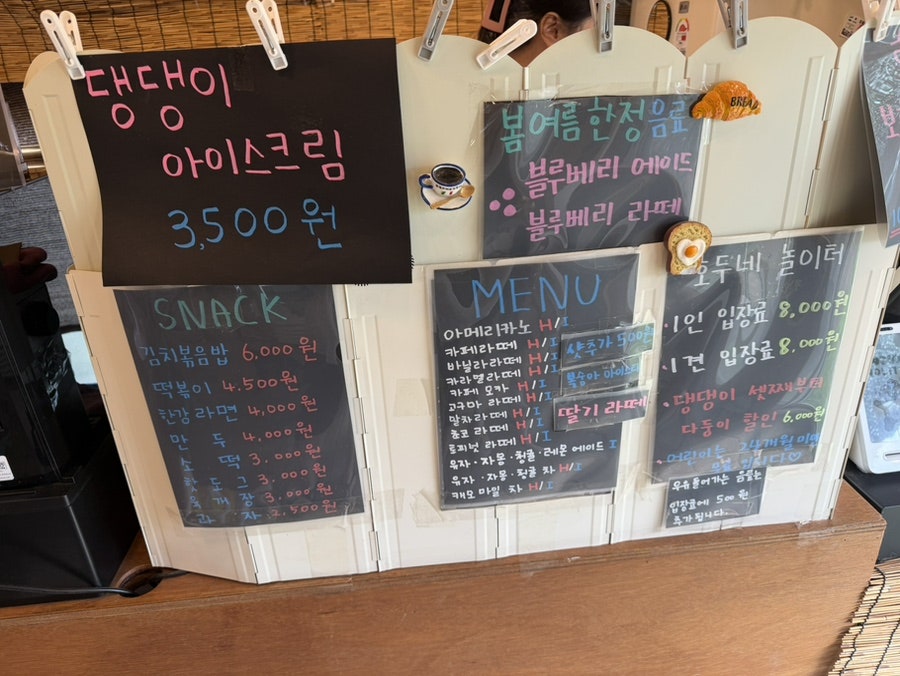 댕댕이
아이스크림
3,500원
봄여름한정음료
블루베리 에이드
블루베리 라떼
BREAD
SNACK
김치볶음밥 6,000원
떡볶이 4,500원
한강라면 4,000원
만두 4,000원
소떡 3,000원
핫도그 3,000원
육개장 3,000원
과자 2,500원
MENU
아메리카노 H/I
카페라떼 H/I
바닐라라떼 H/I
카라멜라떼 H/I
카페 모카 H/I
고구마 라떼 H/I
말차라떼 H/I
쵸코 라떼 H/I
토피넛 라떼 H/I
유자·자몽·청귤·레몬 에이드 I
유자·자몽·청귤 차 H/I
캐모마일 차 H/I
샷추가 500원
복숭아 아이스티
딸기 라떼
호두네 놀이터
·1인 입장료 8,000원
·1견 입장료 8,000원
·댕댕이 셋째부터
다둥이 할인 6,000원
·어린이는 24개월 미만
우유들어가는 음료는
입장료에 500원
추가됩니다.